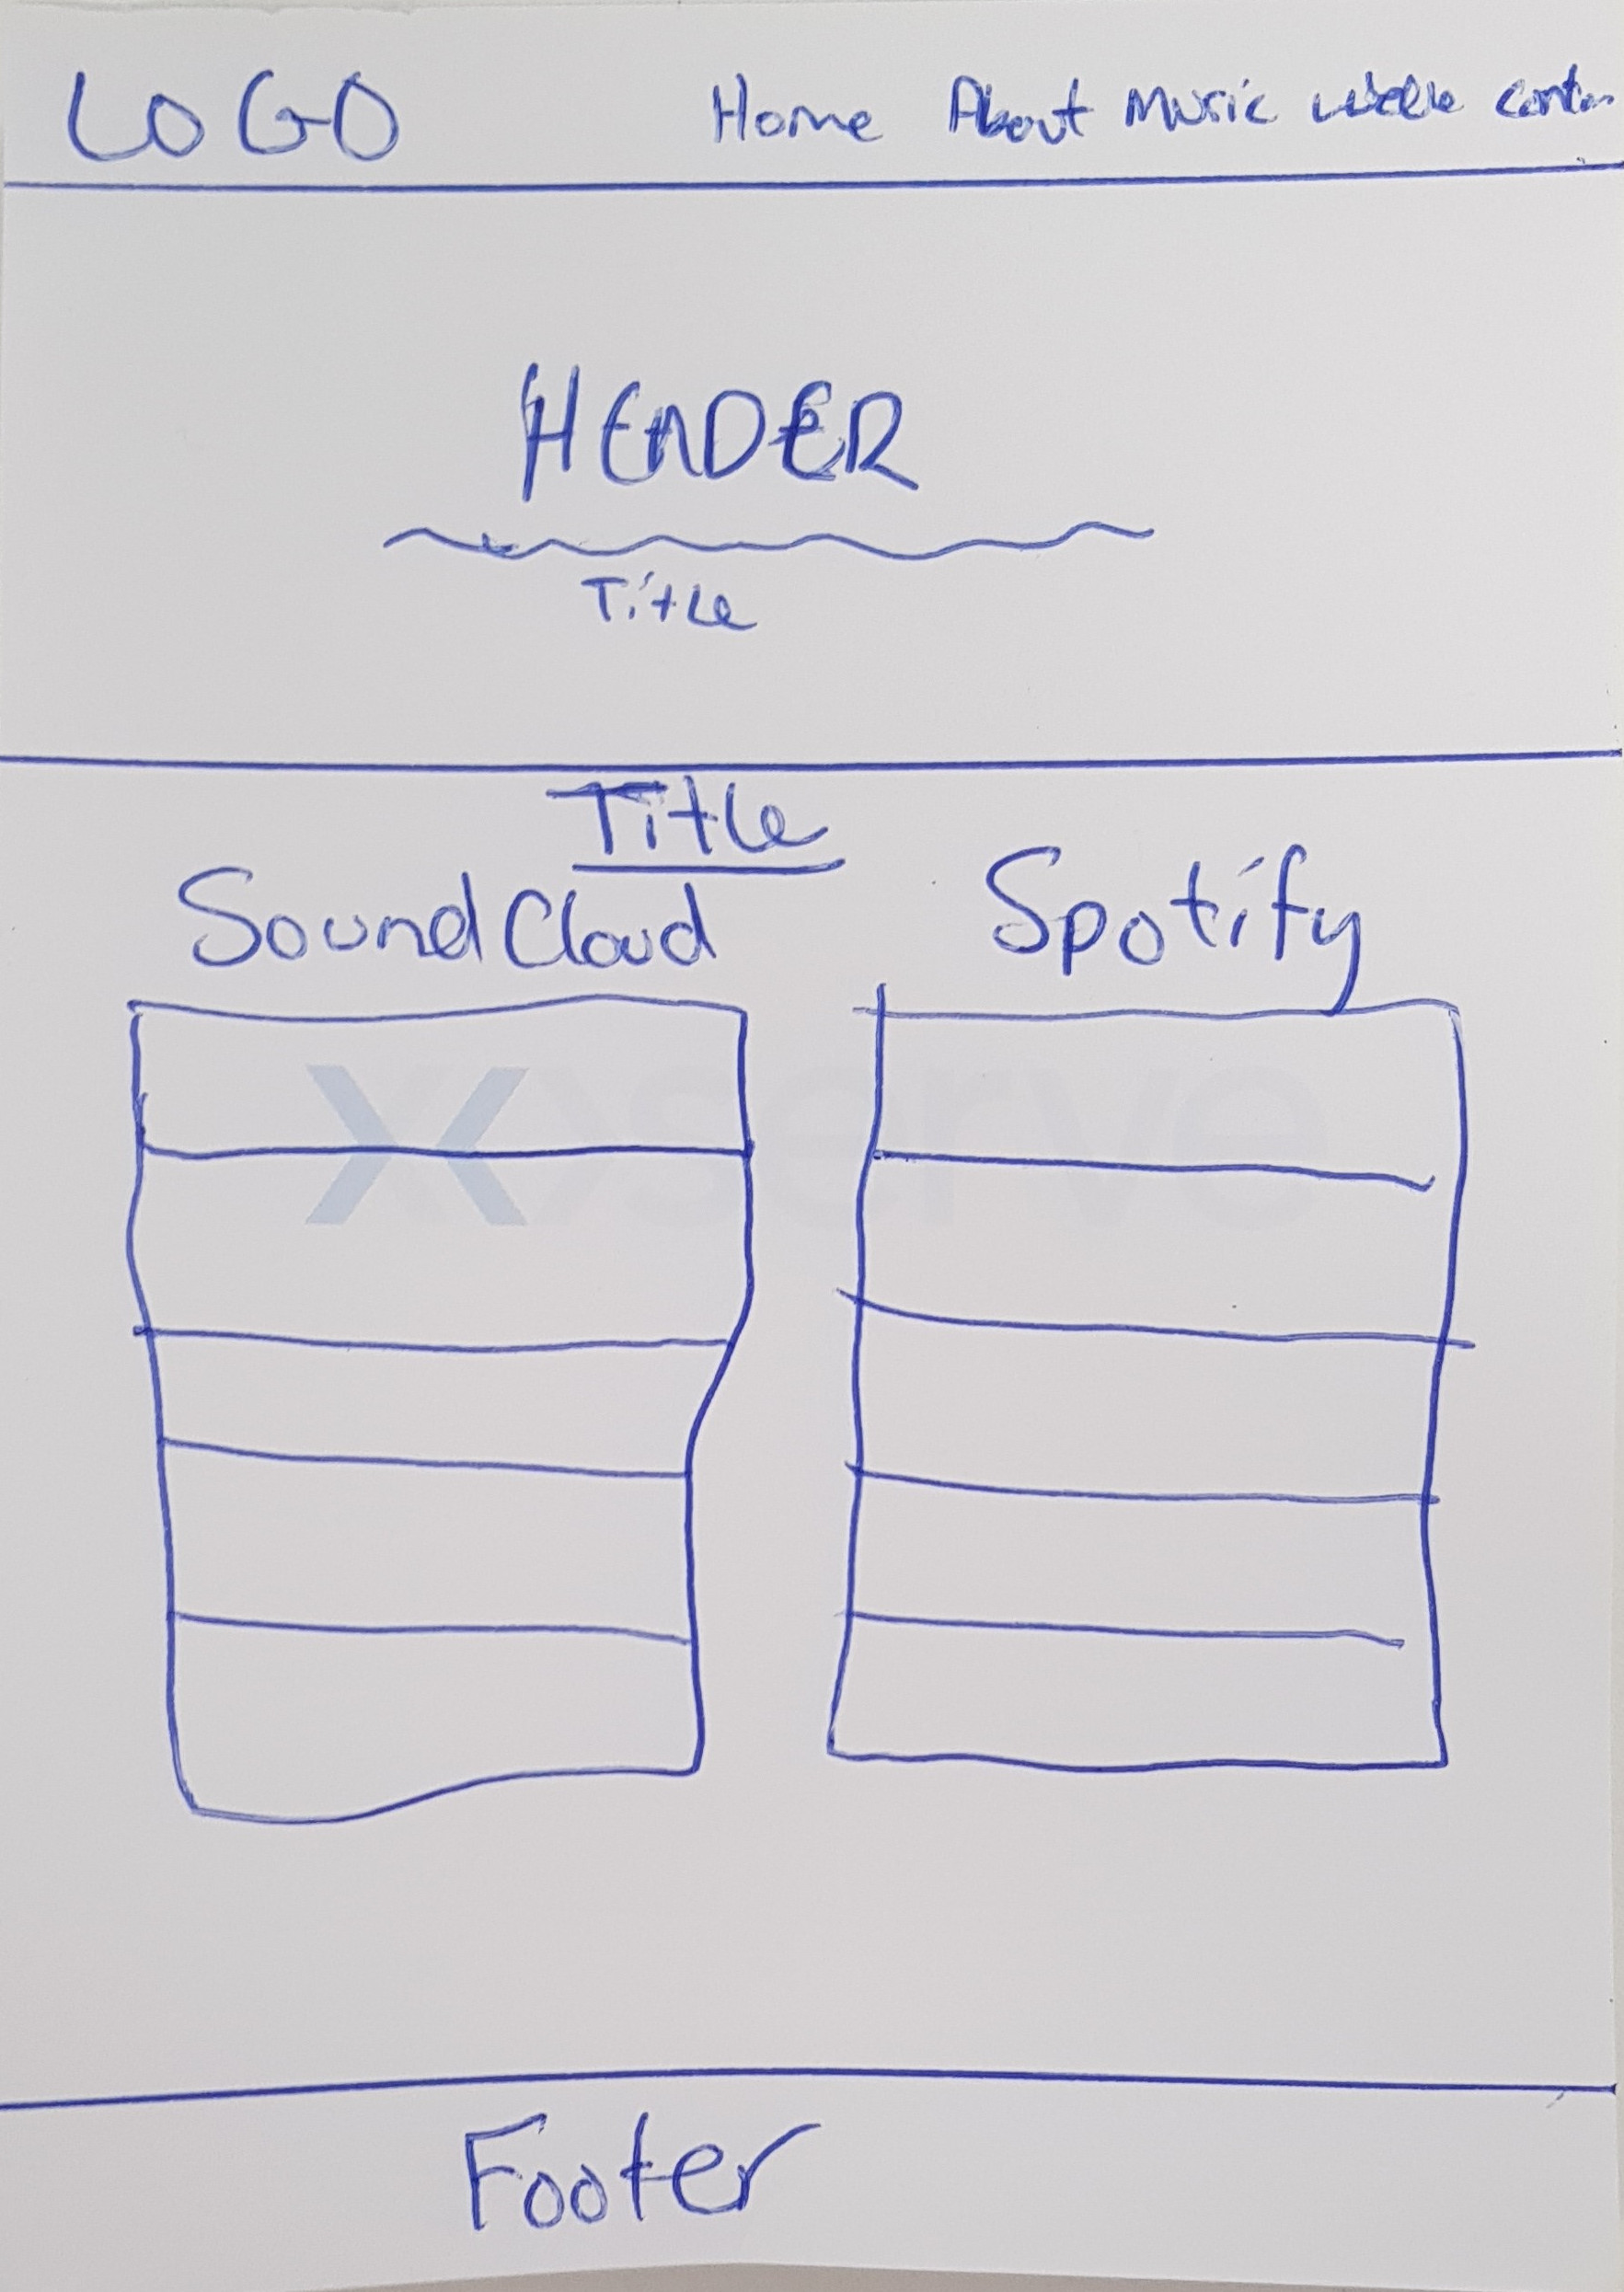 LOGO
Home About Music
HEADER
Title
Title
SoundCloud Spotify
xserve
Footer